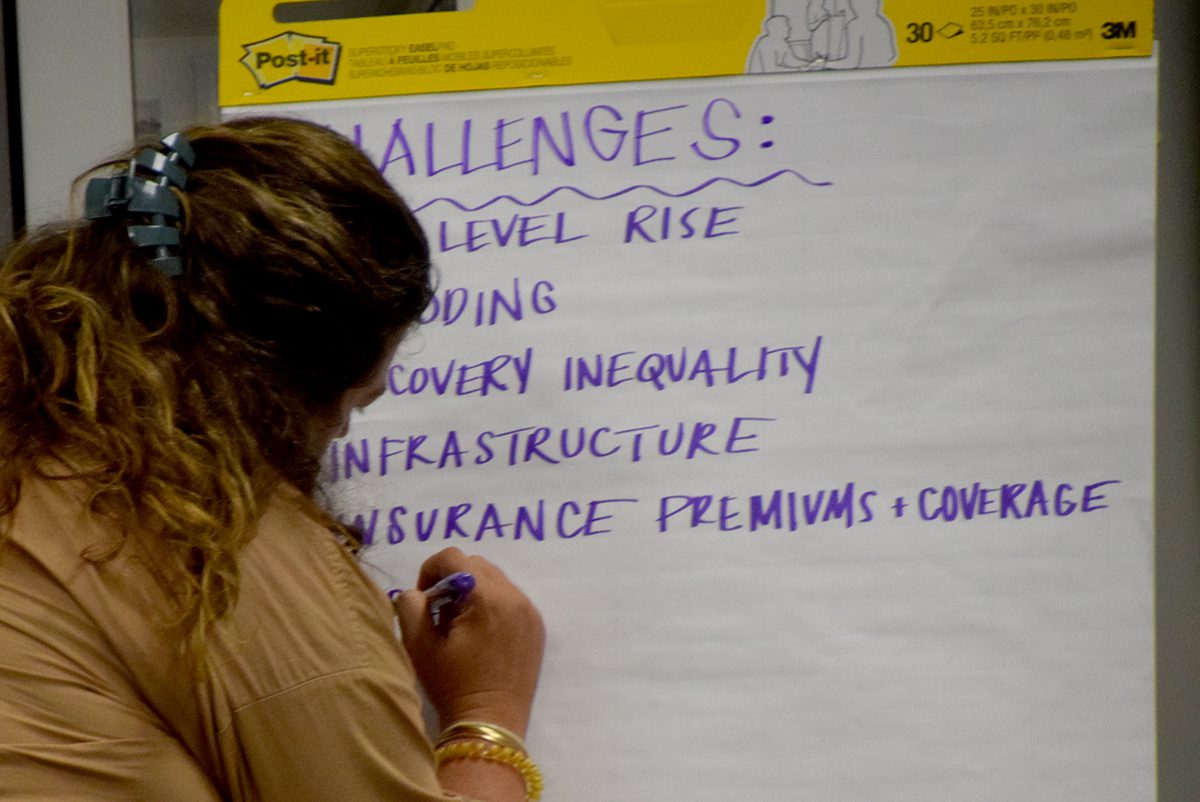 Post-it
SUPERSTICKY EASEL PAD
TABLEAU À FEUILLES MOBILES SUPERCOLLANTES
SUPERADHESIVAS BLOC DE HOJAS REPOSICIONABLES
30
25 IN/PO x 30 IN/PO
63,5 cm x 76,2 cm
5.2 SQ FT/PI² (0,48 m²)
3M
HALLENGES:
LEVEL RISE
ODING
COVERY INEQUALITY
INFRASTRUCTURE
NSURANCE PREMIUMS + COVERAGE